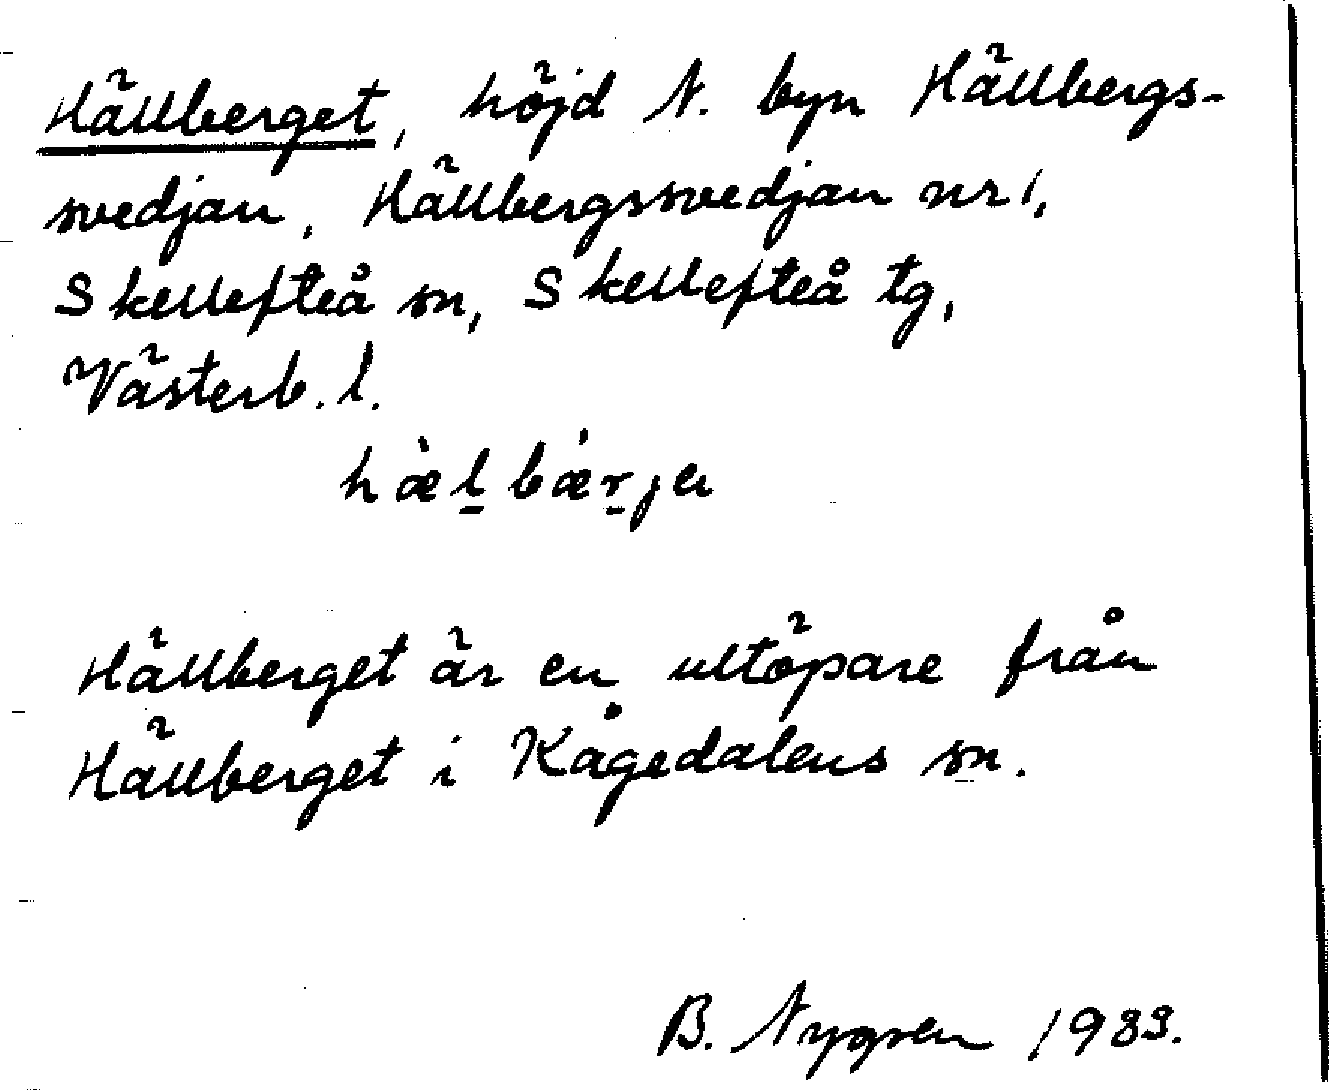 Hällberget, höjd N. byn Hällbergs-
svedjan, Hällbergssvedjan nr 1,
Skellefteå sn, Skellefteå tg,
Västerb. l.
hæ̀l̲bæ̀r̲ja
Hällberget är en utlöpare från
Hällberget i Kågedalens sn.
B. Nygren 1983.